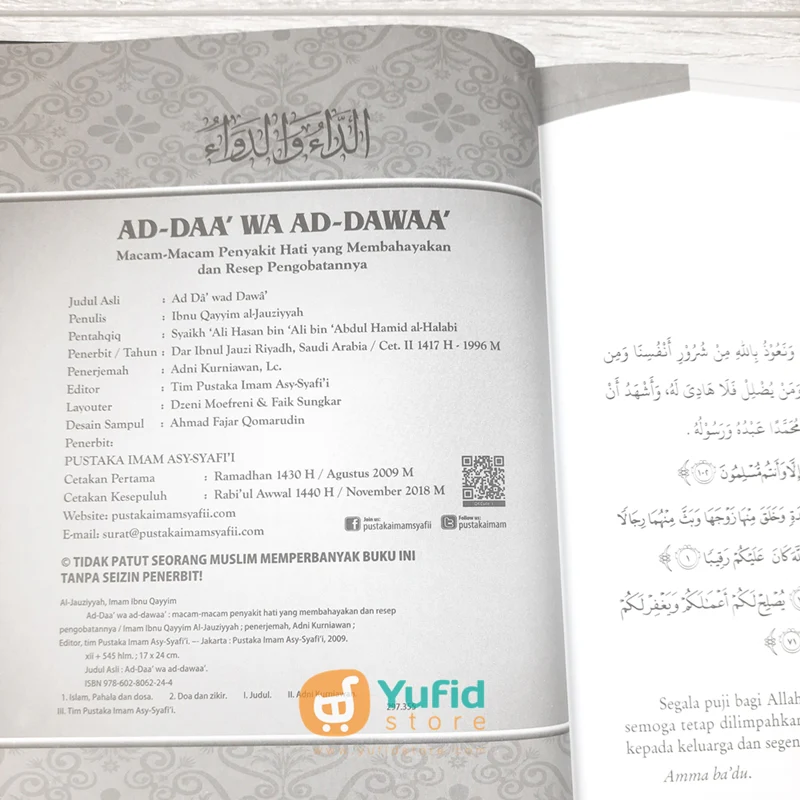 الدَّاءُ وَالدَّوَاءُ
AD-DAA' WA AD-DAWAA'
Macam-Macam Penyakit Hati yang Membahayakan
dan Resep Pengobatannya
Judul Asli : Ad Dā' wad Dawā'
Penulis : Ibnu Qayyim al-Jauziyyah
Pentahqiq : Syaikh 'Ali Hasan bin 'Ali bin 'Abdul Hamid al-Halabi
Penerbit / Tahun : Dar Ibnul Jauzi Riyadh, Saudi Arabia / Cet. II 1417 H - 1996 M
Penerjemah : Adni Kurniawan, Lc.
Editor : Tim Pustaka Imam Asy-Syafi'i
Layouter : Dzeni Moefreni & Faik Sungkar
Desain Sampul : Ahmad Fajar Qomarudin
Penerbit:
PUSTAKA IMAM ASY-SYAFI'I
Cetakan Pertama : Ramadhan 1430 H / Agustus 2009 M
Cetakan Kesepuluh : Rabi'ul Awwal 1440 H / November 2018 M
Website: pustakaimamsyafii.com
E-mail: surat@pustakaimamsyafii.com
Join us:
pustakaimamsyafii
Follow us:
pustakaimam
© TIDAK PATUT SEORANG MUSLIM MEMPERBANYAK BUKU INI
TANPA SEIZIN PENERBIT!
Al-Jauziyyah, Imam Ibnu Qayyim
Ad-Daa' wa ad-dawaa' : macam-macam penyakit hati yang membahayakan dan resep
pengobatannya / Imam Ibnu Qayyim Al-Jauziyyah ; penerjemah, Adni Kurniawan ;
Editor, tim Pustaka Imam Asy-Syafi'i. — Jakarta : Pustaka Imam Asy-Syafi'i, 2009.
xii + 545 hlm. ; 17 x 24 cm.
Judul Asli : Ad-Daa' wa ad-dawaa'.
ISBN 978-602-8062-24-4
1. Islam, Pahala dan dosa. 2. Doa dan zikir. I. Judul. II. Adni Kurniawan.
III. Tim Pustaka Imam Asy-Syafi'i.
297.355
Yufid
store
وَنَعُوْذُ بِاللهِ مِنْ شُرُوْرِ أَنْفُسِنَا وَمِنْ
وَمَنْ يُضْلِلْ فَلَا هَادِيَ لَهُ، وَأَشْهَدُ أَنْ
مُحَمَّدًا عَبْدُهُ وَرَسُوْلُهُ.
إِلَّا وَأَنتُم مُّسْلِمُونَ ١٠٢
وَخَلَقَ مِنْهَا زَوْجَهَا وَبَثَّ مِنْهُمَا رِجَالًا
كَانَ عَلَيْكُمْ رَقِيبًا ١
يُصْلِحْ لَكُمْ أَعْمَالَكُمْ وَيَغْفِرْ لَكُمْ
٧١
Segala puji bagi Allah
semoga tetap dilimpahkan
kepada keluarga dan segen
Amma ba'du.